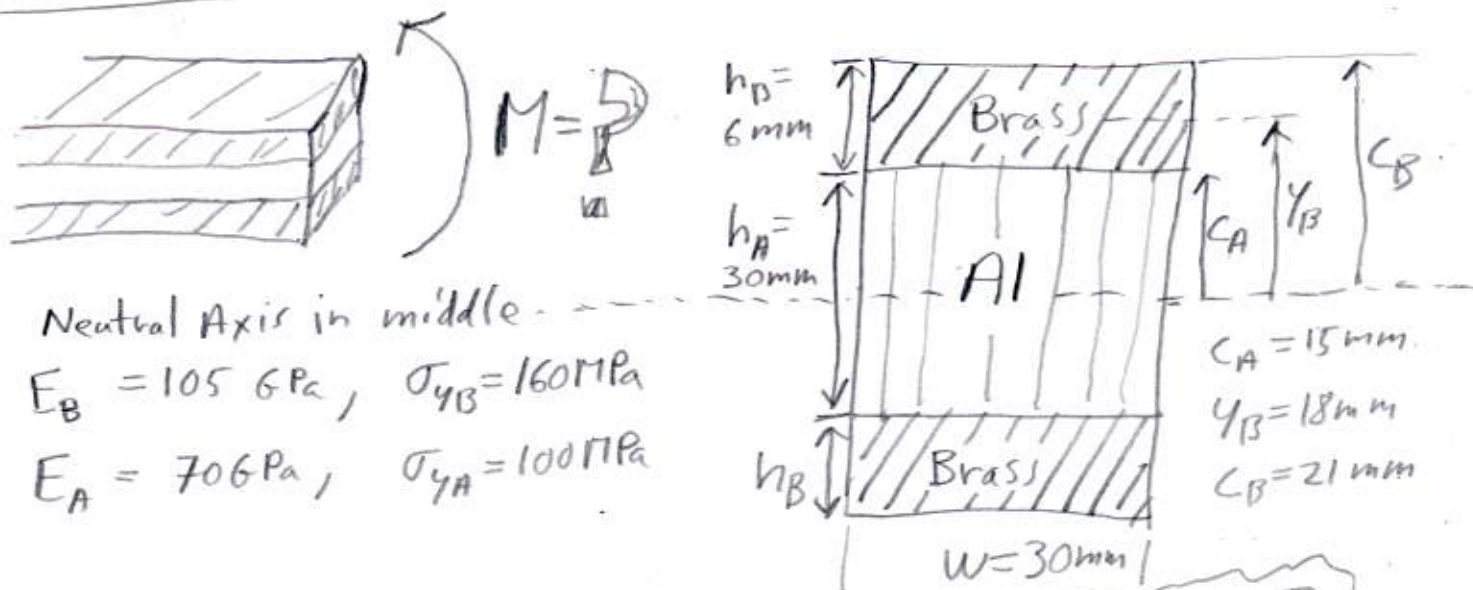 M=?
Neutral Axis in middle
E_B = 105 GPa, σ_yB=160MPa
E_A = 70GPa, σ_yA=100MPa
h_B=
6mm
h_A=
30mm
h_B
Brass
Al
Brass
W=30mm
C_A
y_B
C_B
C_A = 15mm
y_B = 18mm
C_B = 21mm